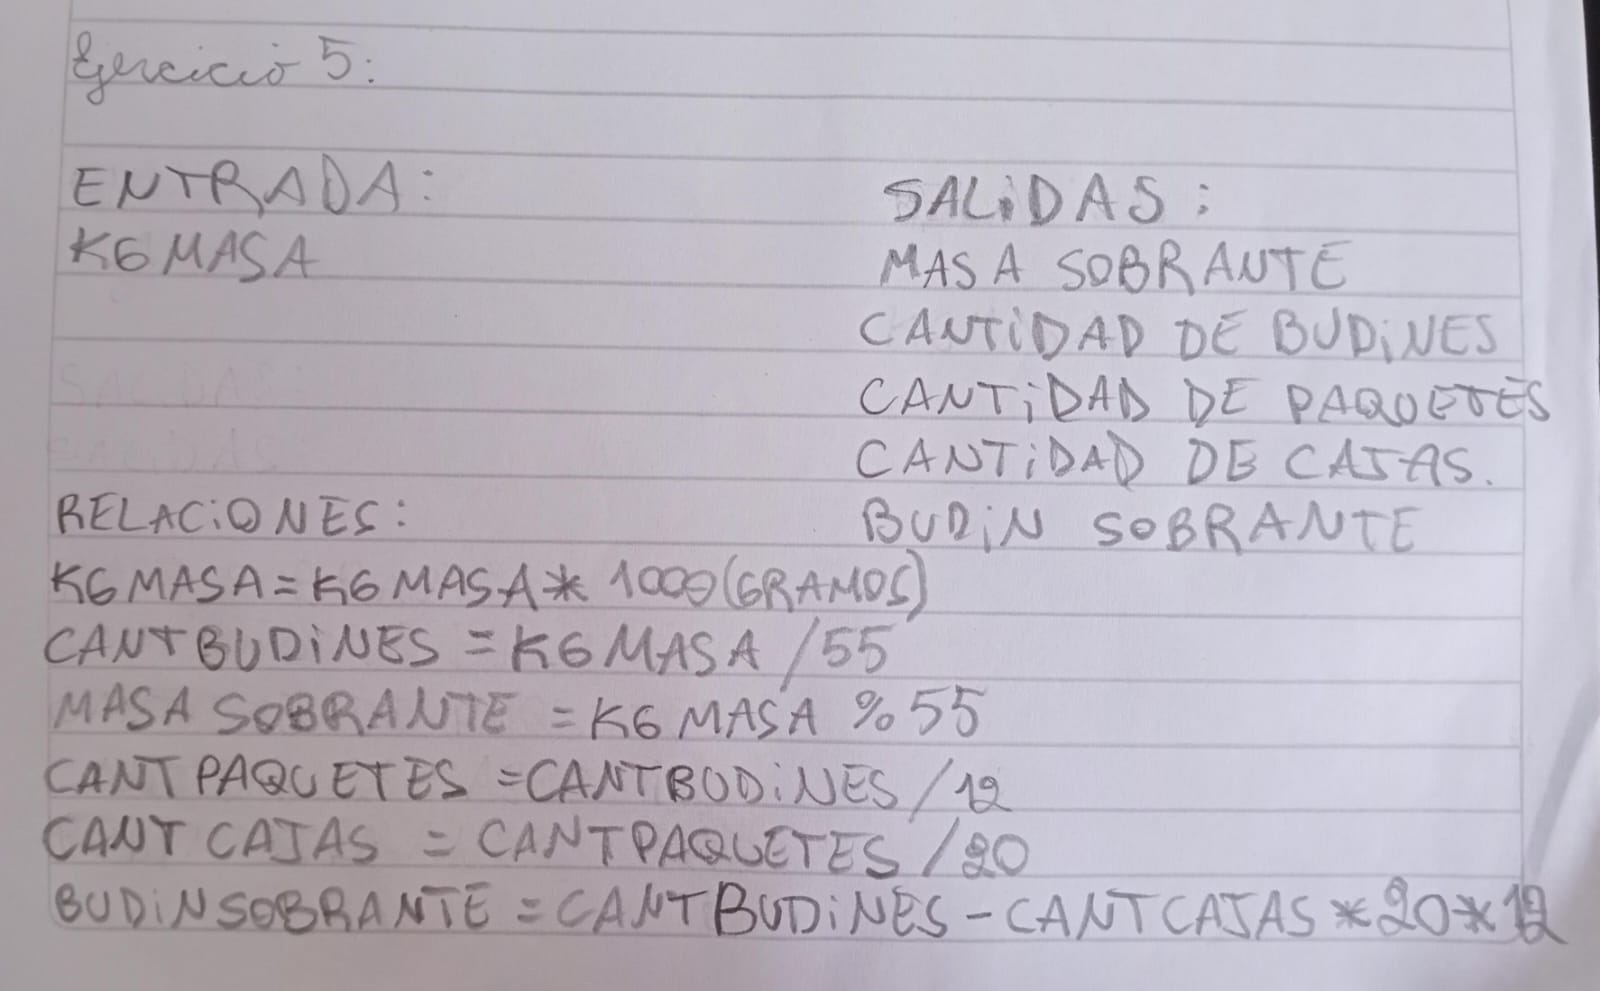 Ejercicio 5:
ENTRADA:
KGMASA
SALIDAS:
MASA SOBRANTE
CANTIDAD DE BUDINES
CANTIDAD DE PAQUETES
CANTIDAD DE CAJAS.
BUDIN SOBRANTE
RELACIONES:
KGMASA=KGMASA* 1000(GRAMOS)
CANTBUDINES = KGMASA /55
MASA SOBRANTE = KGMASA %55
CANTPAQUETES =CANTBUDINES /12
CANTCAJAS = CANTPAQUETES /20
BUDINSOBRANTE =CANTBUDINES-CANTCAJAS*20*12